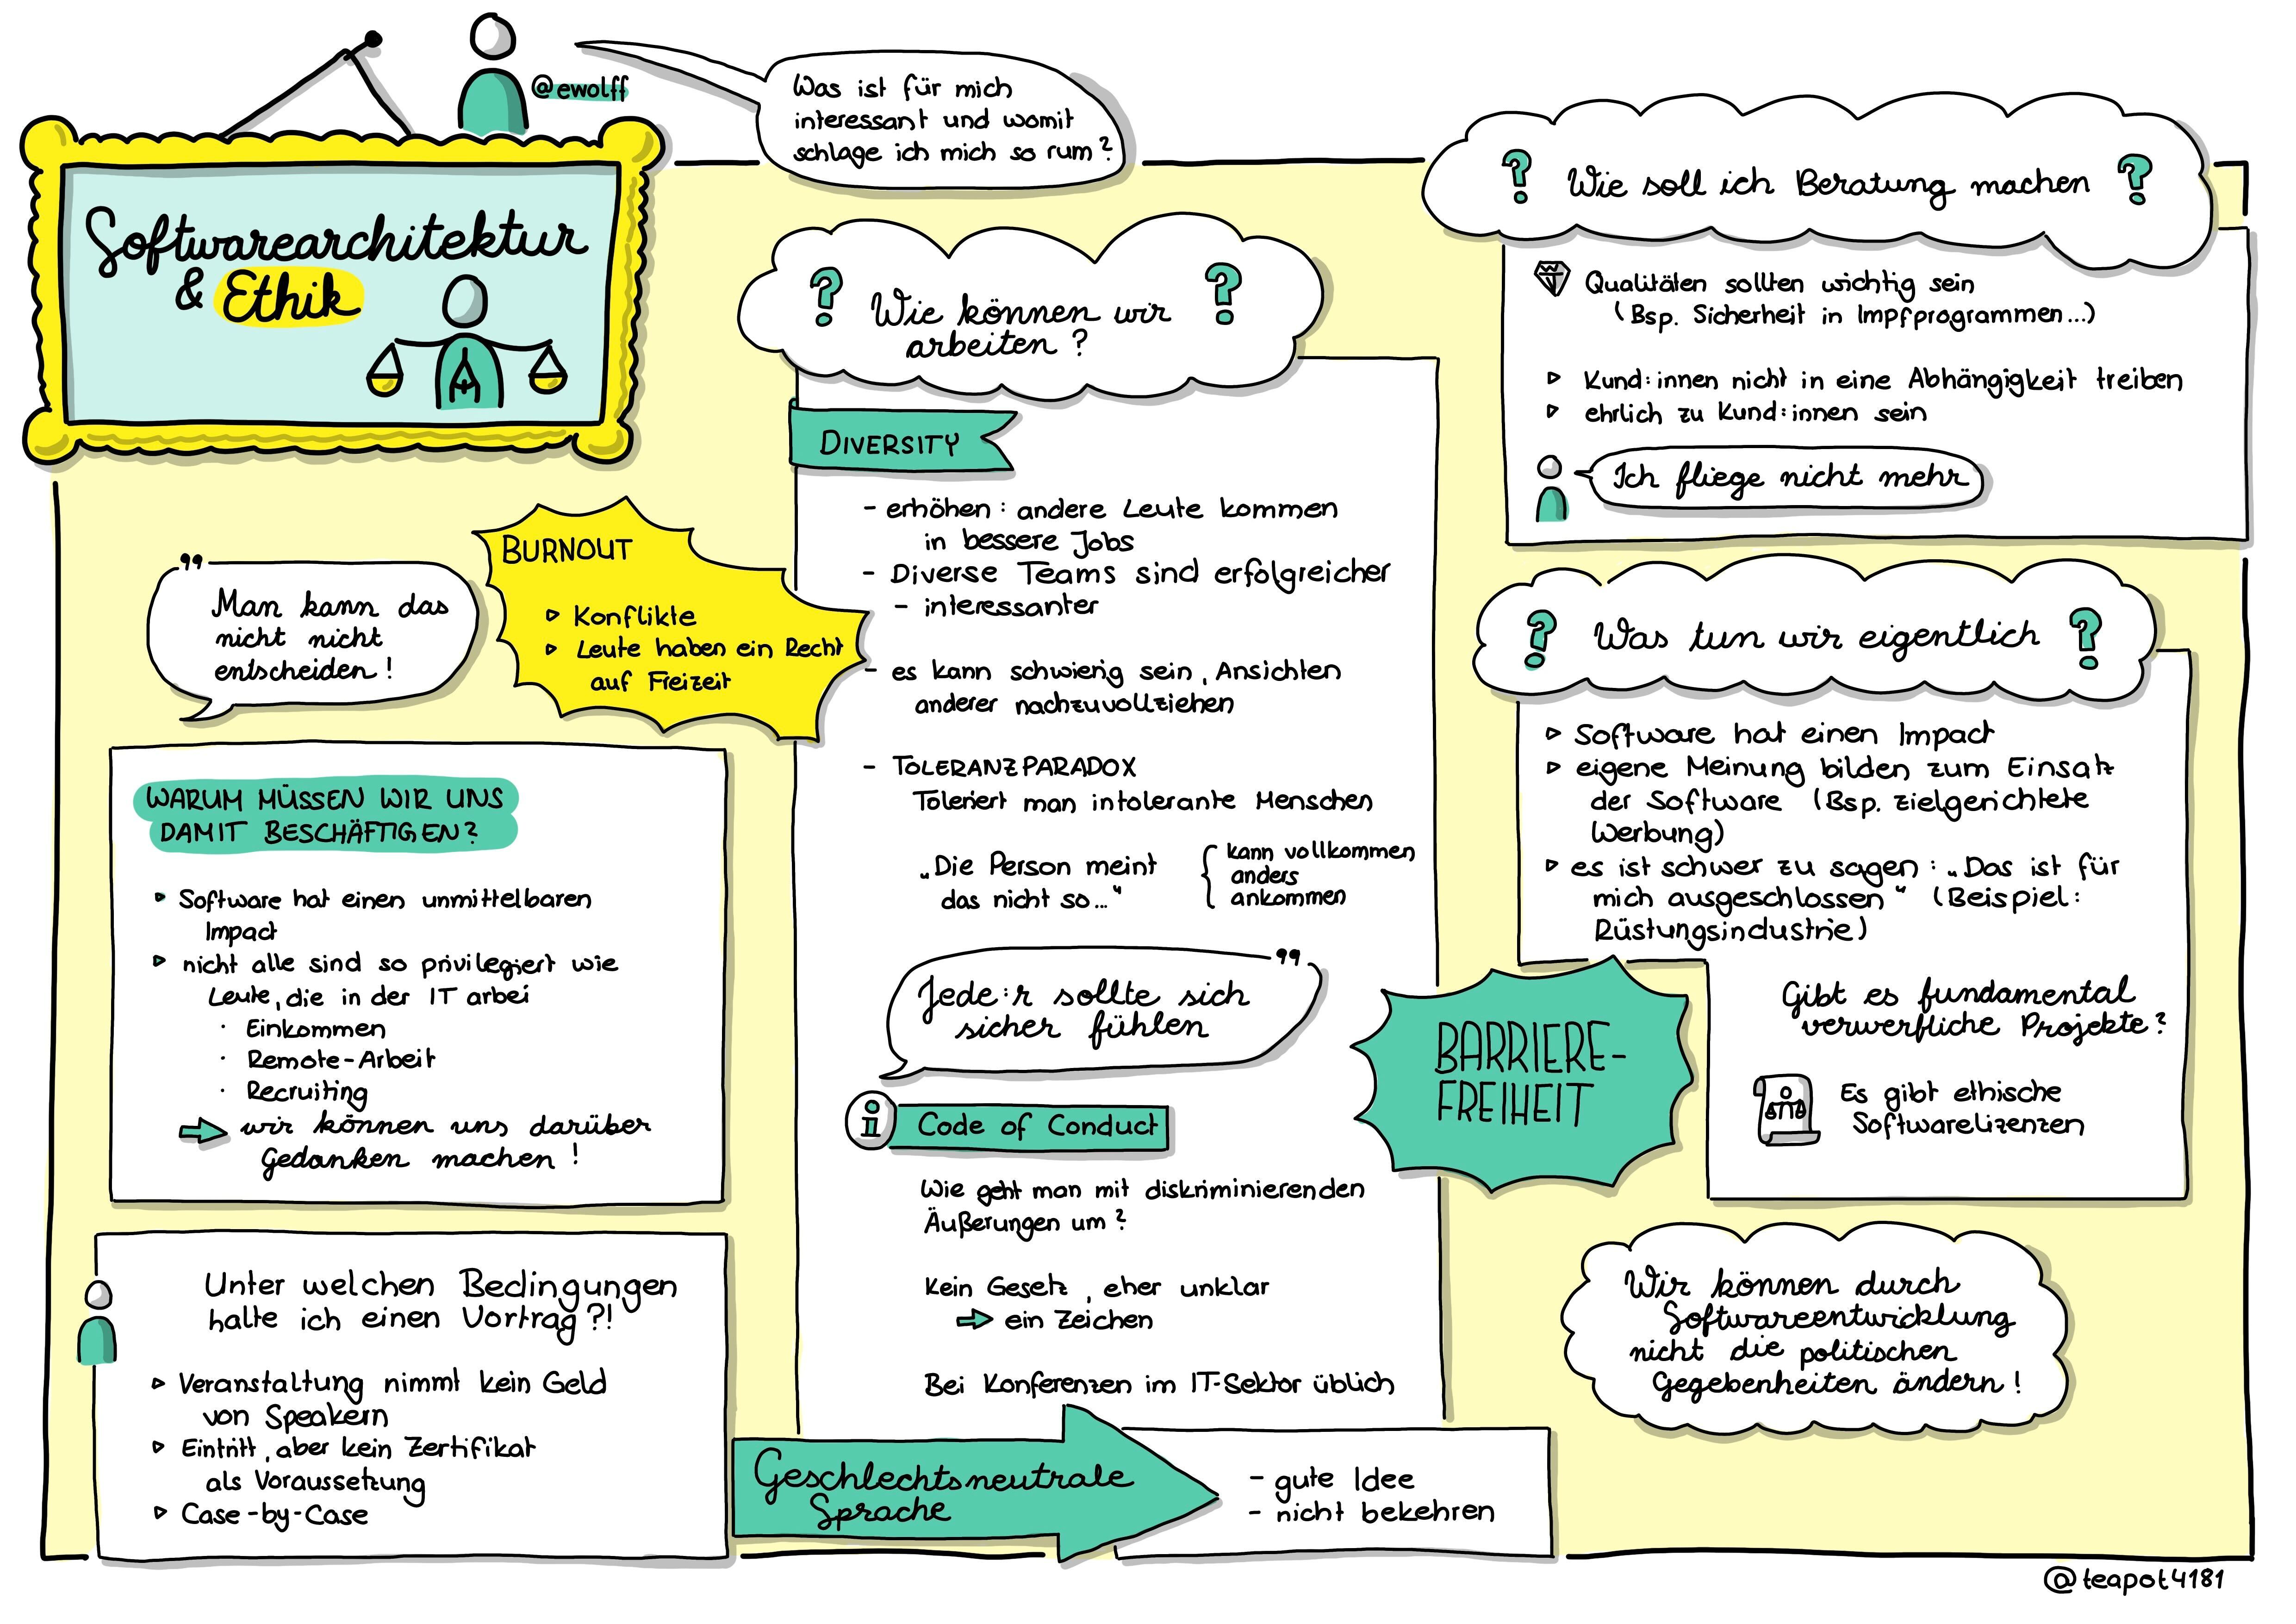 @ewolff
Was ist für mich
interessant und womit
schlage ich mich so rum?
Softwarearchitektur
& Ethik
"
Man kann das
nicht nicht
entscheiden!
BURNOUT
Konflikte
Leute haben ein Recht
auf Freizeit
WARUM MÜSSEN WIR UNS
DAMIT BESCHÄFTIGEN?
Software hat einen unmittelbaren
Impact
nicht alle sind so privilegiert wie
Leute, die in der IT arbei
· Einkommen
· Remote-Arbeit
· Recruiting
wir können uns darüber
Gedanken machen!
Unter welchen Bedingungen
halte ich einen Vortrag?!
Veranstaltung nimmt kein Geld
von Speakern
Eintritt, aber kein Zertifikat
als Voraussetzung
Case-by-Case
? Wie können wir ?
arbeiten?
DIVERSITY
- erhöhen: andere Leute kommen
in bessere Jobs
- Diverse Teams sind erfolgreicher
- interessanter
- es kann schwierig sein, Ansichten
anderer nachzuvollziehen
- TOLERANZPARADOX
Toleriert man intolerante Menschen
„Die Person meint
das nicht so..."
{ kann vollkommen
anders
ankommen
"
Jede:r sollte sich
sicher fühlen
i Code of Conduct
Wie geht man mit diskriminierenden
Äußerungen um?
Kein Gesetz, eher unklar
ein Zeichen
Bei Konferenzen im IT-Sektor üblich
Geschlechtsneutrale
Sprache
- gute Idee
- nicht bekehren
? Wie soll ich Beratung machen ?
Qualitäten sollten wichtig sein
(Bsp. Sicherheit in Impfprogrammen...)
Kund:innen nicht in eine Abhängigkeit treiben
ehrlich zu Kund:innen sein
Ich fliege nicht mehr
? Was tun wir eigentlich ?
Software hat einen Impact
eigene Meinung bilden zum Einsatz
der Software (Bsp. zielgerichtete
Werbung)
es ist schwer zu sagen: „Das ist für
mich ausgeschlossen" (Beispiel:
Rüstungsindustrie)
Gibt es fundamental
verwerfliche Projekte?
Es gibt ethische
Softwarelizenzen
BARRIERE-
FREIHEIT
Wir können durch
Softwareentwicklung
nicht die politischen
Gegebenheiten ändern!
@teapot4181